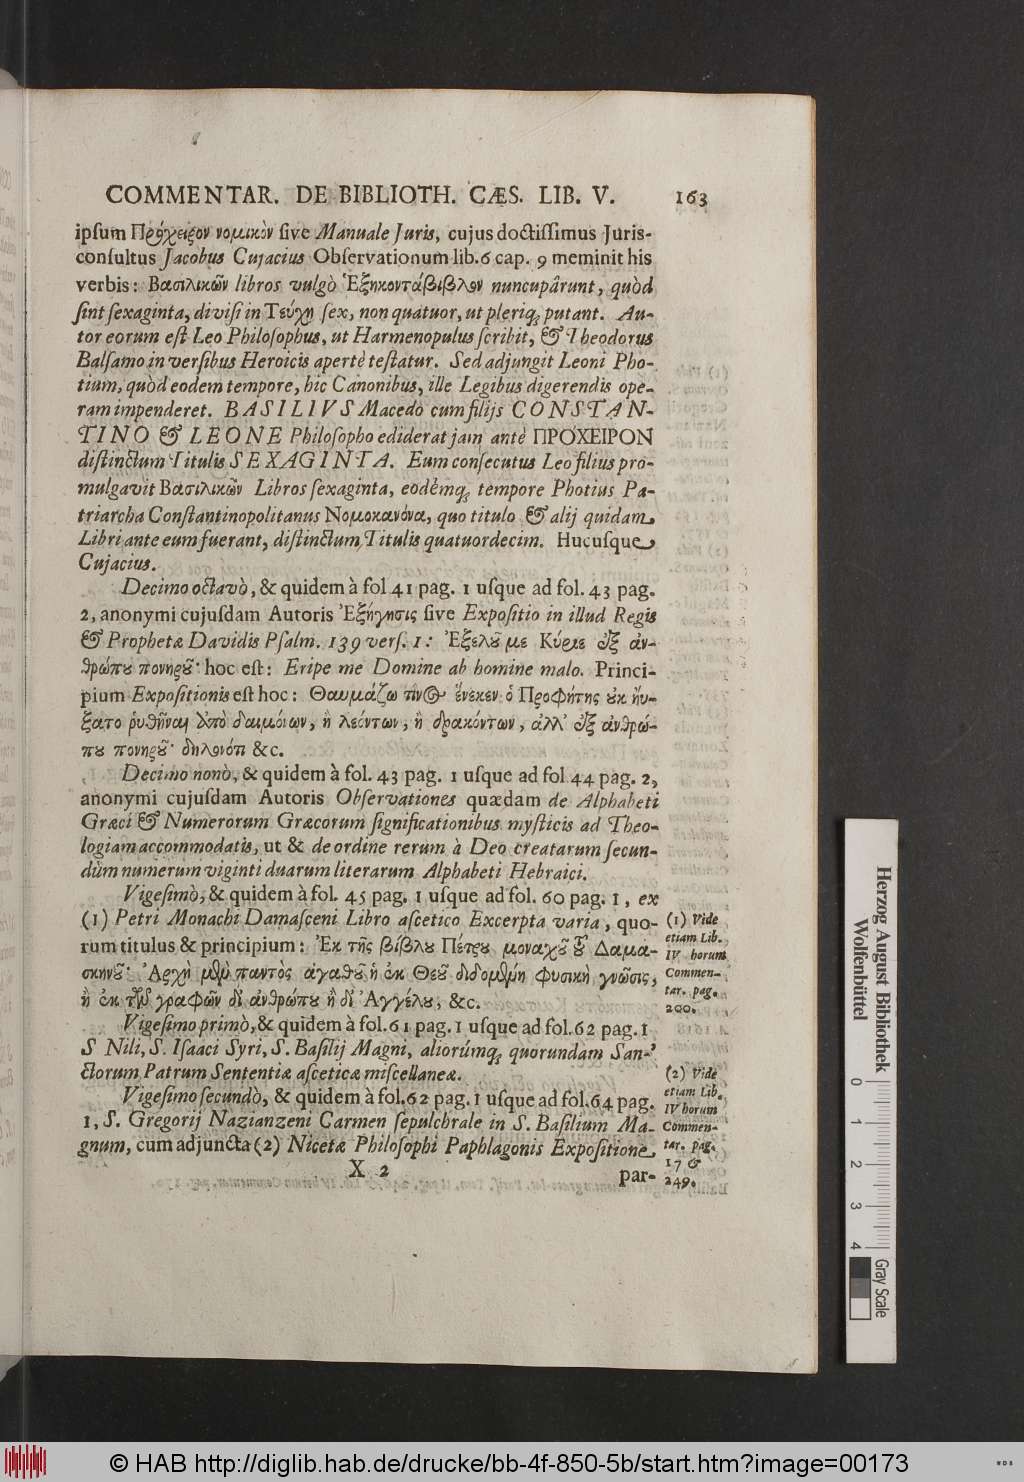 COMMENTAR. DE BIBLIOTH. CÆS. LIB. V. 163
ipſum Πρόχειρον νομικὸν ſive Manuale Juris, cujus doctiſſimus Juris-
conſultus Jacobus Cujacius Obſervationum lib. 6 cap. 9 meminit his
verbis: Βασιλικῶν libros vulgò Ἑξηκοντάβιβλον nuncupârunt, quòd
ſint ſexaginta, diviſi in Τεύχη ſex, non quatuor, ut pleriq; putant. Au-
tor eorum eſt Leo Philoſophus, ut Harmenopulus ſcribit, & Theodorus
Balſamo in verſibus Heroicis apertè teſtatur. Sed adjungit Leoni Pho-
tium, quòd eodem tempore, hic Canonibus, ille Legibus digerendis ope-
ram impenderet. BASILIVS Macedo cum filijs CONSTAN-
TINO & LEONE Philoſopho ediderat jam antè ΠΡΟΧΕΙΡΟΝ
diſtinctum Titulis SEXAGINTA. Eum conſecutus Leo filius pro-
mulgavit Βασιλικῶν Libros ſexaginta, eodémq; tempore Photius Pa-
triarcha Conſtantinopolitanus Νομοκανόνα, quo titulo & alij quidam
Libri ante eum fuerant, diſtinctum Titulis quatuordecim. Hucuſque
Cujacius.
Decimo octavò, & quidem à fol 41 pag. 1 uſque ad fol. 43 pag.
2, anonymi cujuſdam Autoris Ἐξήγησις ſive Expoſitio in illud Regis
& Prophetæ Davidis Pſalm. 139 verſ. 1: Ἐξελοῦ με Κύριε ἐξ ἀν-
θρώπου πονηροῦ· hoc eſt: Eripe me Domine ab homine malo. Princi-
pium Expoſitionis eſt hoc: Θαυμάζω τίνος ἕνεκεν ὁ Προφήτης οὐκ ἤυ-
ξατο ῥυθῆναι ἀπὸ δαιμόνων, ἢ λεόντων, ἢ δρακόντων, ἀλλ' ἐξ ἀνθρώ-
που πονηροῦ· δηλονότι &c.
Decimo nonò, & quidem à fol. 43 pag. 1 uſque ad fol 44 pag. 2,
anonymi cujuſdam Autoris Obſervationes quædam de Alphabeti
Græci & Numerorum Græcorum ſignificationibus myſticis ad Theo-
logiam accommodatis, ut & de ordine rerum à Deo creatarum ſecun-
dùm numerum viginti duarum literarum Alphabeti Hebraici.
Vigeſimò, & quidem à fol. 45 pag. 1 uſque ad fol. 60 pag. 1, ex
(1) Petri Monachi Damaſceni Libro aſcetico Excerpta varia, quo-
rum titulus & principium: Ἐκ τῆς βίβλου Πέτρου μοναχοῦ τοῦ Δαμα-
σκηνοῦ· Ἀρχὴ μὲν παντὸς ἀγαθοῦ ἡ ἐκ Θεοῦ διδομένη φυσικὴ γνῶσις,
ἢ ἐκ τῶν γραφῶν δι' ἀνθρώπου ἢ δι' Ἀγγέλου, &c.
Vigeſimo primò, & quidem à fol. 61 pag. 1 uſque ad fol. 62 pag. 1
S Nili, S. Iſaaci Syri, S. Baſilij Magni, aliorúmq; quorundam San-
ctorum Patrum Sententiæ aſceticæ miſcellaneæ.
Vigeſimo ſecundò, & quidem à fol. 62 pag. 1 uſque ad fol. 64 pag.
1, S. Gregorij Nazianzeni Carmen ſepulchrale in S. Baſilium Ma-
gnum, cum adjuncta (2) Nicetæ Philoſophi Paphlagonis Expoſitione
X 2
par-
(1) Vide
etiam Lib.
IV horum
Commen-
tar. pag.
200.
(2) Vide
etiam Lib.
IV horum
Commen-
tar. pag.
17 &
249.
Herzog August Bibliothek
Wolfenbüttel
0 1 2 3 4
Gray Scale
© HAB http://diglib.hab.de/drucke/bb-4f-850-5b/start.htm?image=00173